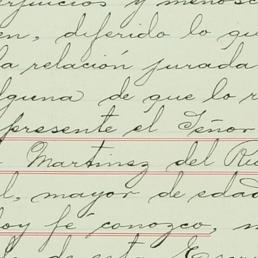 perjuicios y menosc
en, diferido lo qu
a relación jurada
lguna de que lo r
presente el Señor
Martinez del Ri
l, mayor de edad
doy fé conozco,
de esta Escri